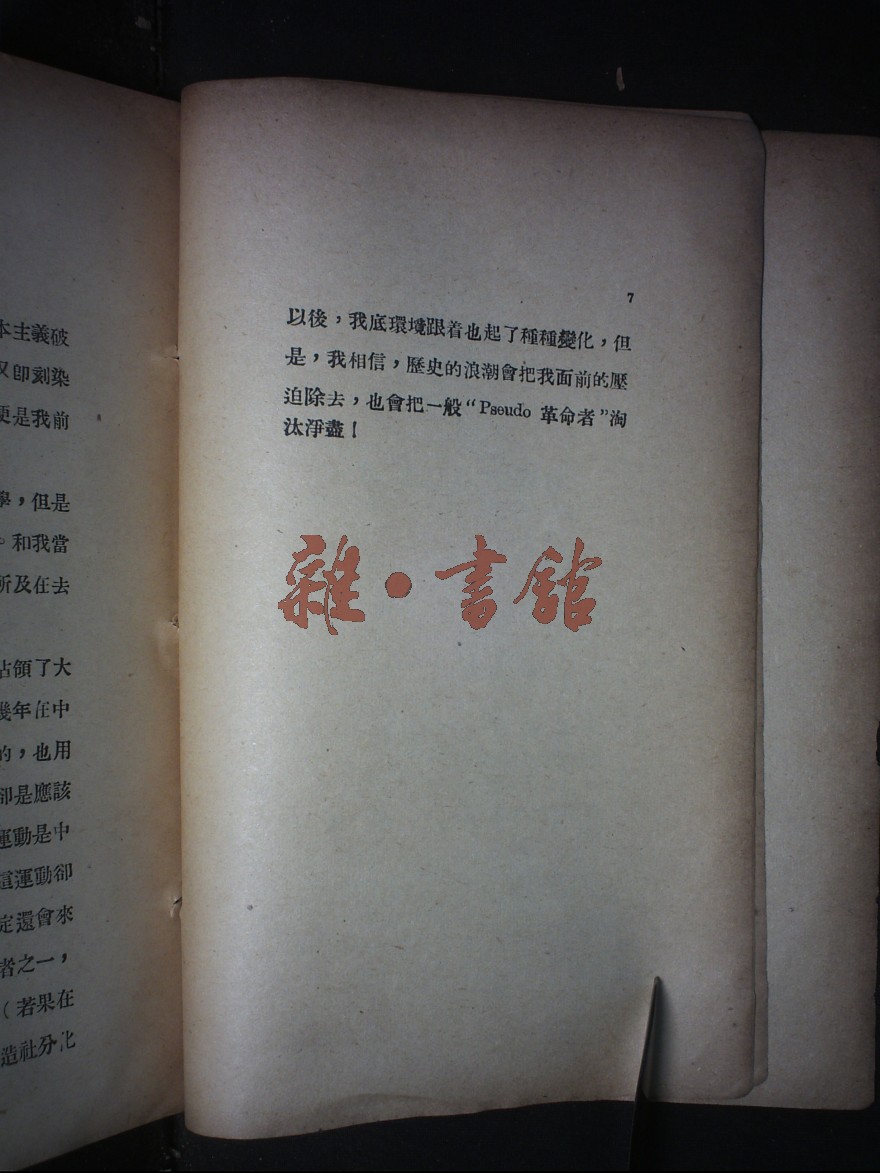 本主義破
又卽刻染
更是我前
學，但是
。和我當
所及在去
佔領了大
幾年在中
的，也用
卻是應該
運動是中
這運動卻
定還會來
者之一，
（若果在
造社分化
7
以後，我底環境跟着也起了種種變化，但
是，我相信，歷史的浪潮會把我面前的壓
迫除去，也會把一般“Pseudo 革命者”淘
汰淨盡！
雜·書館